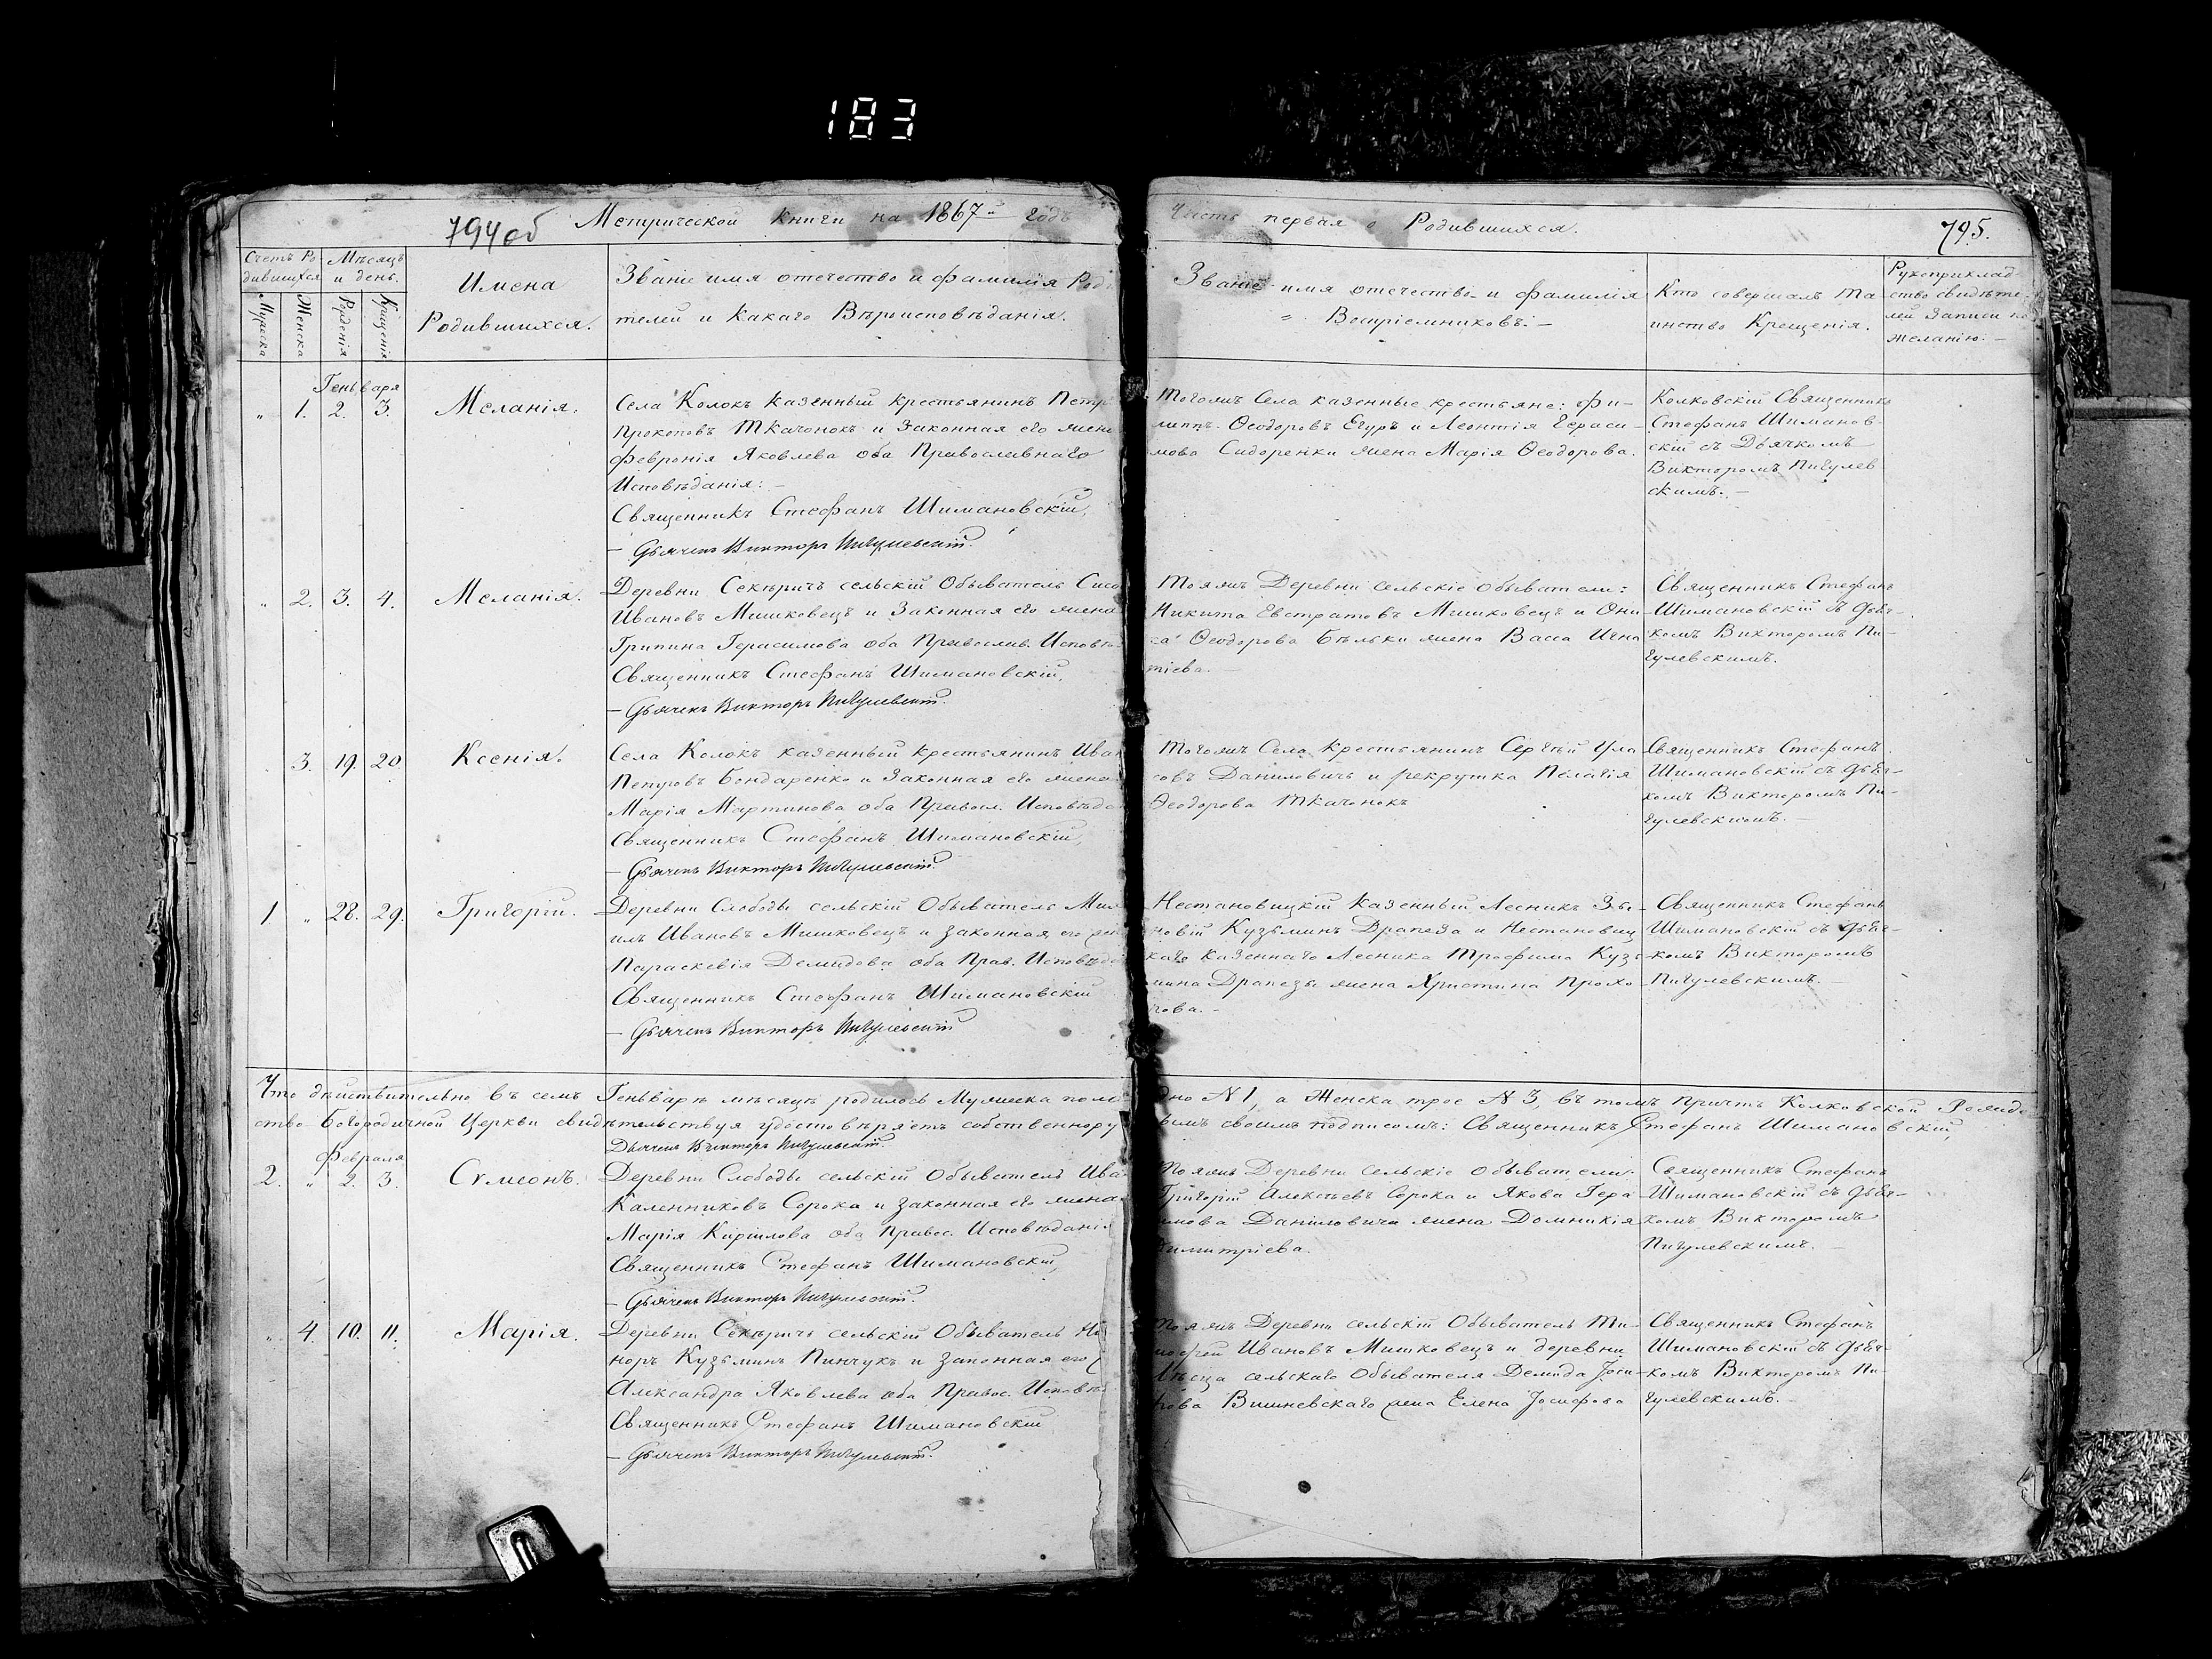 183
794об Метрической книги на 1867й годъ
Часть первая о Родившихся. 795.
Счетъ Ро-
дившихся
Мужеска
Женска
Мѣсяцъ
и день.
Рожденія
Крещенія
Имена
Родившихся.
Званіе имя отечество и фамилія Роди
телей и какаго Вѣроисповѣданія.
Званіе имя отечество и фамилія
" Воспріемниковъ: –
Кто совершалъ та
инство Крещенія.
Рукоприклад-
ство свидѣте-
лей записи по
желанію. –
Генваря
" 1. 2. 3. Меланія.
Села Колокъ казенный крестьянинъ Петръ
Прокоповъ Ткачонокъ и законная его жена
Февронія Яковлева оба Православнаго
Исповѣданія: –
Священникъ Стефанъ Шимановскій,
– Дьячекъ Викторъ Пигулевскій.
Тогожъ Села казенные крестьяне: Фи-
липпъ Ѳеодоровъ Егуръ и Леонтія Гераси-
мова Сидоренки жена Марія Ѳеодорова.
Колковскій Священникъ
Стефанъ Шиманов-
скій съ Дьячкомъ
Викторомъ Пигулев
скимъ. –
" 2. 3. 4. Меланія.
Деревни Секѣричъ сельскій Обыватель Сисо
Ивановъ Мишковецъ и Законная его жена
Грипина Герасимова оба Православ. Исповѣ
Священникъ Стефанъ Шимановскій,
– Дьячекъ Викторъ Пигулевскій.
Тояжъ Деревни сельскіе обыватели:
Никита Евстратовъ Мишковецъ и Они-
ка Ѳеодорова Бѣльки жена Васса Игна
тіева. –
Священникъ Стефанъ
Шимановскій съ Дьяч-
комъ Викторомъ Пи-
гулевскимъ.
3. 19. 20. Ксенія.
Села Колокъ казенный крестьянинъ Иван
Петровъ Бондаренко и Законная его жена
Марія Мартинова оба Правосл. Исповѣда
Священникъ Стефанъ Шимановскій,
– Дьячекъ Викторъ Пигулевскій.
Тогожъ Села крестьянинъ Сергѣй Ула
совъ Даниловичъ и рекрутка Пелагія
Ѳеодорова Ткачонокъ
Священникъ Стефанъ
Шимановскій съ Дьяч-
комъ Викторомъ Пи-
гулевскимъ. –
1. " 28. 29. Григорій.
Деревни Слободы сельскій Обыватель Мих
илъ Ивановъ Мишковецъ и Законная его жен
Параскевія Демидова оба Прав. Исповѣда
Священникъ Стефанъ Шимановскій
– Дьячекъ Викторъ Пигулевскій
Нестановицкій Казенный Лесникъ Зѣ-
новій Кузьминъ Драпеза и Нестановиц
каго казеннаго Лесника Трофима Кузь
мина Драпезы жена Христина Прохо-
рова. –
Священникъ Стефанъ
Шимановскій съ Дьяч-
комъ Викторомъ
Пигулевскимъ. –
Что дѣйствительно въ семъ Генварѣ мѣсяцѣ родилось Мужеска пола одно N 1, а Женска трое N 3, въ томъ причтъ Колковской Рожде
ство-Богородичной Церкви свидѣтельствуя удостовѣряетъ собственнору своимъ подписомъ: Священникъ Стефанъ Шимановскій,
Дьячекъ Викторъ Пигулевскій.
Февраля
2. " 2. 3. Сѵмеонъ.
Деревни Слободы сельскій Обыватель Ива
Каленниковъ Сорока и Законная его жена
Марія Кирилова оба Правос. Исповѣданія
Священникъ Стефанъ Шимановскій,
– Дьячекъ Викторъ Пигулевскій.
Тояжъ Деревни сельскіе обыватели:
Григорій Алексѣевъ Сорока и Якова Гера
имова Даниловича жена Домникія
Димитріева.
Священникъ Стефанъ
Шимановскій съ Дьяч-
комъ Викторомъ
Пигулевскимъ. –
" 4. 10. 11. Марія.
Деревни Секѣричъ сельскій Обыватель Ни
норъ Кузьминъ Пинчукъ и Законная его
Александра Яковлева оба Правос. Исповѣ
Священникъ Стефанъ Шимановскій
– Дьячекъ Викторъ Пигулевскій.
Тояжъ Деревни сельскій Обыватель Ти-
мофей Ивановъ Мишковецъ и деревни
сельскаго Обывателя Демида Іоси-
фова Вишневскаго жена Елена Іосифова
Священникъ Стефанъ
Шимановскій съ Дьяч-
комъ Викторомъ Пи-
гулевскимъ. –